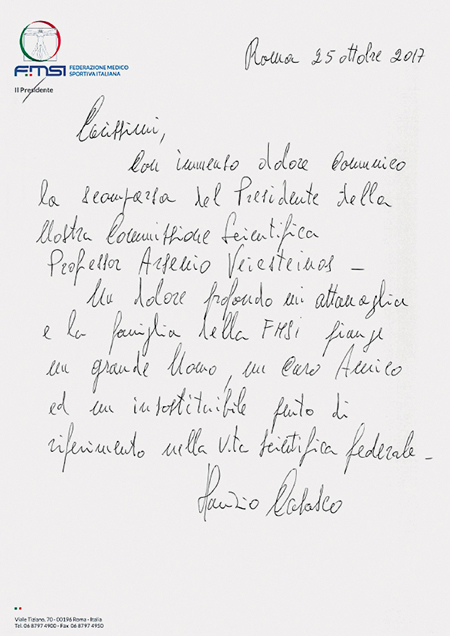 FMSI FEDERAZIONE MEDICO
SPORTIVA ITALIANA
Il Presidente
Roma 25 ottobre 2017
Carissimi,
Con immenso dolore comunico
la scomparsa del Presidente della
Nostra Commissione Scientifica
Professor Arsenio Veicsteinas -
Un dolore profondo mi attanaglia
e la famiglia della FMSI piange
un grande Uomo, un caro Amico
ed un insostituibile punto di
riferimento nella vita scientifica federale -
Maurizio Casasco
Viale Tiziano, 70 - 00196 Roma - Italia
Tel. 06 8797 4900 - Fax 06 8797 4950